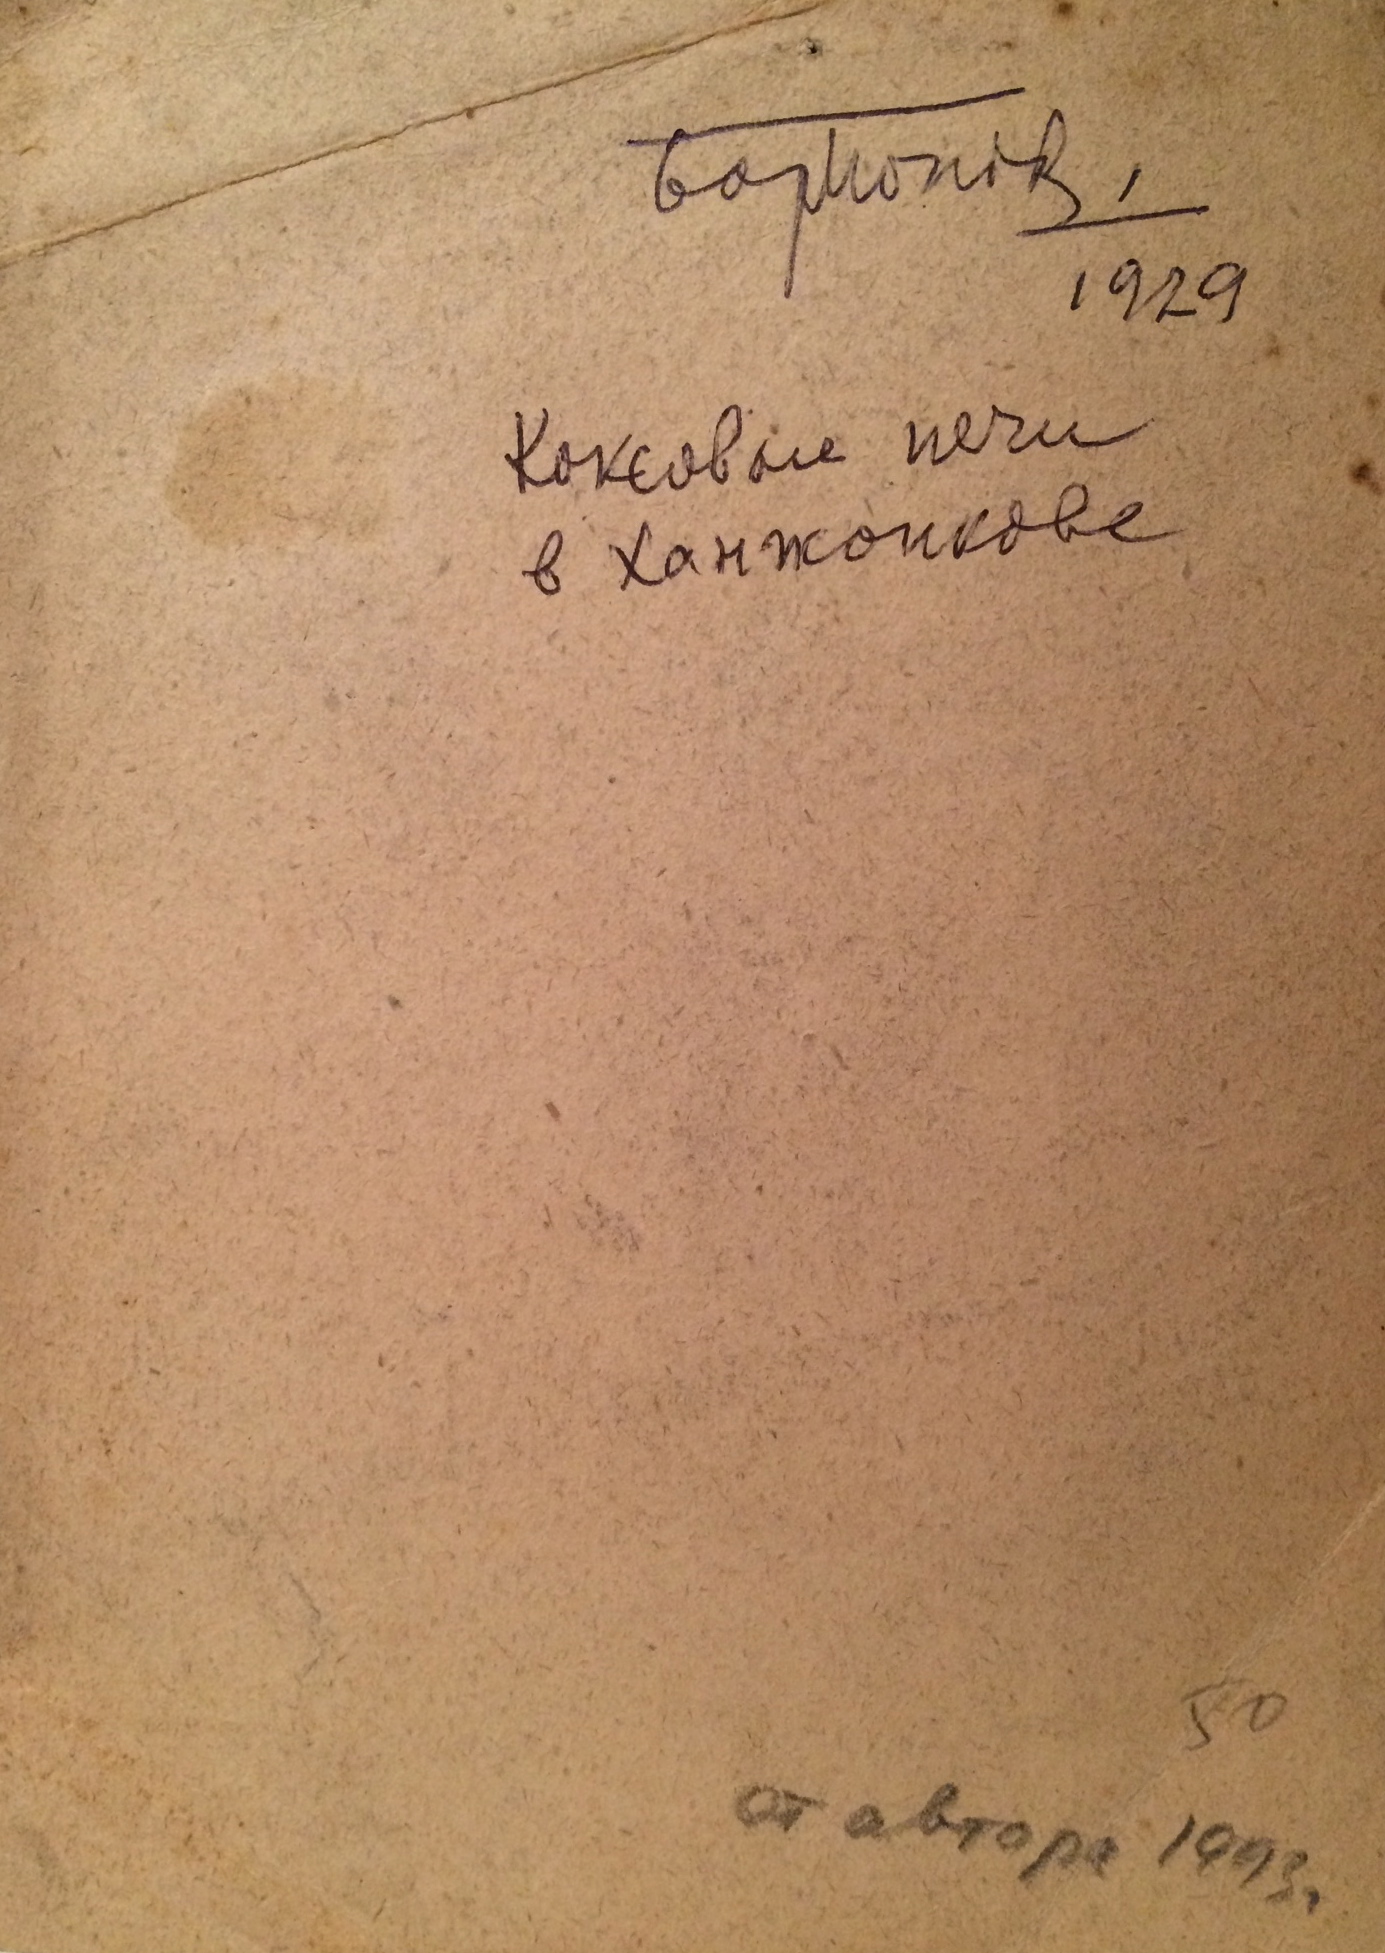 1929
Коксовые печи
в Ханжонкове
50
от автора 1993г.